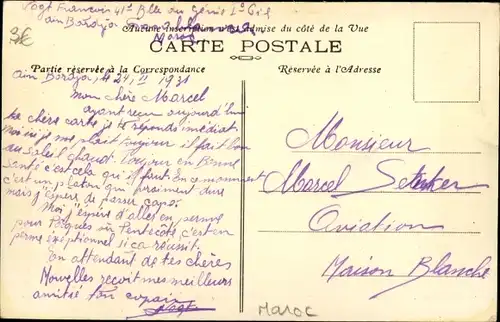 Vogt Francois 41e Blle du génie 1e Cie
ain Bordja
Maroc
Aucune Inscription du côté de la Vue
CARTE POSTALE
Partie réservée à la Correspondance
Réservée à l'Adresse
Ain Bordja, 24, II 1931
mon chère Marcel
ayant reçu aujourd'hui
ta chère carte je te réponds imédiat
Moi ici je me plait toujours il fait bon
au soleil chaud. Toujour en Bonne
santé c'est cela qui il faut. En ce moment
c'est un peloton qui vraiment dure
mais j'éspère de passer capo.
Moi j'éspère d'aller en perme
pour Pâques ou Pentecôte c'est en
perme exeptionnel si ca réussit.
En attendant de tes chères
Nouvelles reçoit mes meilleurs
amitiés ton copain
Vogt
Monsieur
Marcel
Aviation
Maison Blanche
MAROC
3€